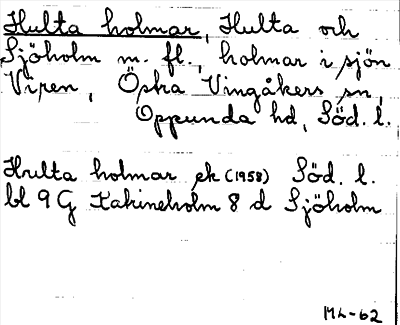 Hulta holmar, Hulta och
Sjöholm m. fl., holmar i sjön
Viren, Östra Vingåkers sn,
Oppunda hd, Söd. l.
Hulta holmar ek (1958) Söd. l.
bl 9 G Katrineholm 8 d Sjöholm
ML-62